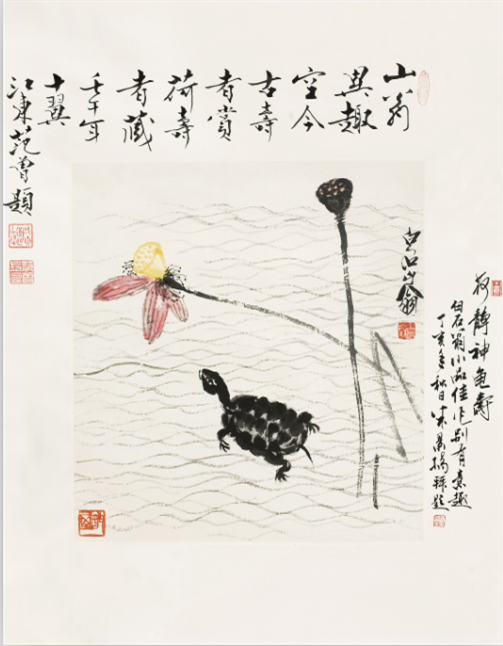 山翁
異趣
空今
古壽
者賞
荷壽
者藏
壬午年
十翼
江東范曾題
白石山翁
荷靜神龜壽
白石翁小品佳作別有意趣
丁亥年秋日
題